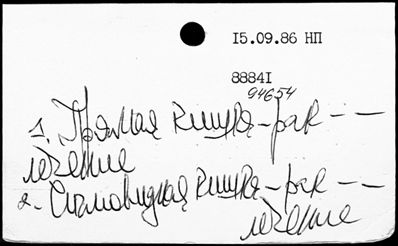 15.09.86 НП
88841
94654
1. Прямая кишка – рак – –
лечение
2. Сигмовидная кишка – рак – –
лечение